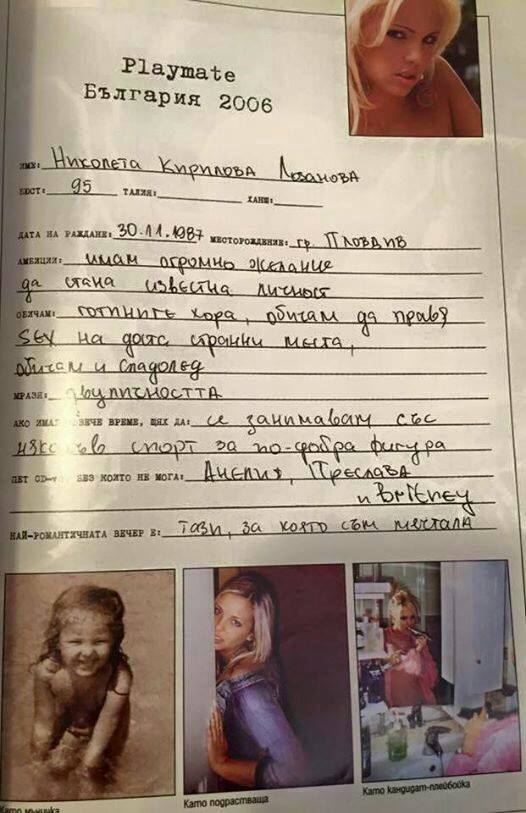 Playmate
България 2006
ИМЕ: Николета Кирилова Лозанова
БЮСТ: 95 ТАЛИЯ: ХАНШ:
ДАТА НА РАЖДАНЕ: 30.11.1987 МЕСТОРОЖДЕНИЕ: гр. Пловдив
АМБИЦИИ: имам огромно желание
да стана известна личност
ОБИЧАМ: готините хора, обичам да правя
SEX на доста странни места,
обичам и сладолед
МРАЗЯ: двуличността
АКО ИМАХ ПОВЕЧЕ ВРЕМЕ, ЩЯХ ДА: се занимавам със
някакъв спорт за по-добра фигура
ПЕТ CD-та, БЕЗ КОИТО НЕ МОГА: Анелия, Преслава
и Britney
НАЙ-РОМАНТИЧНАТА ВЕЧЕР Е: Тази, за която съм мечтала
Като мъничка
Като подрастваща
Като кандидат-плейбойка